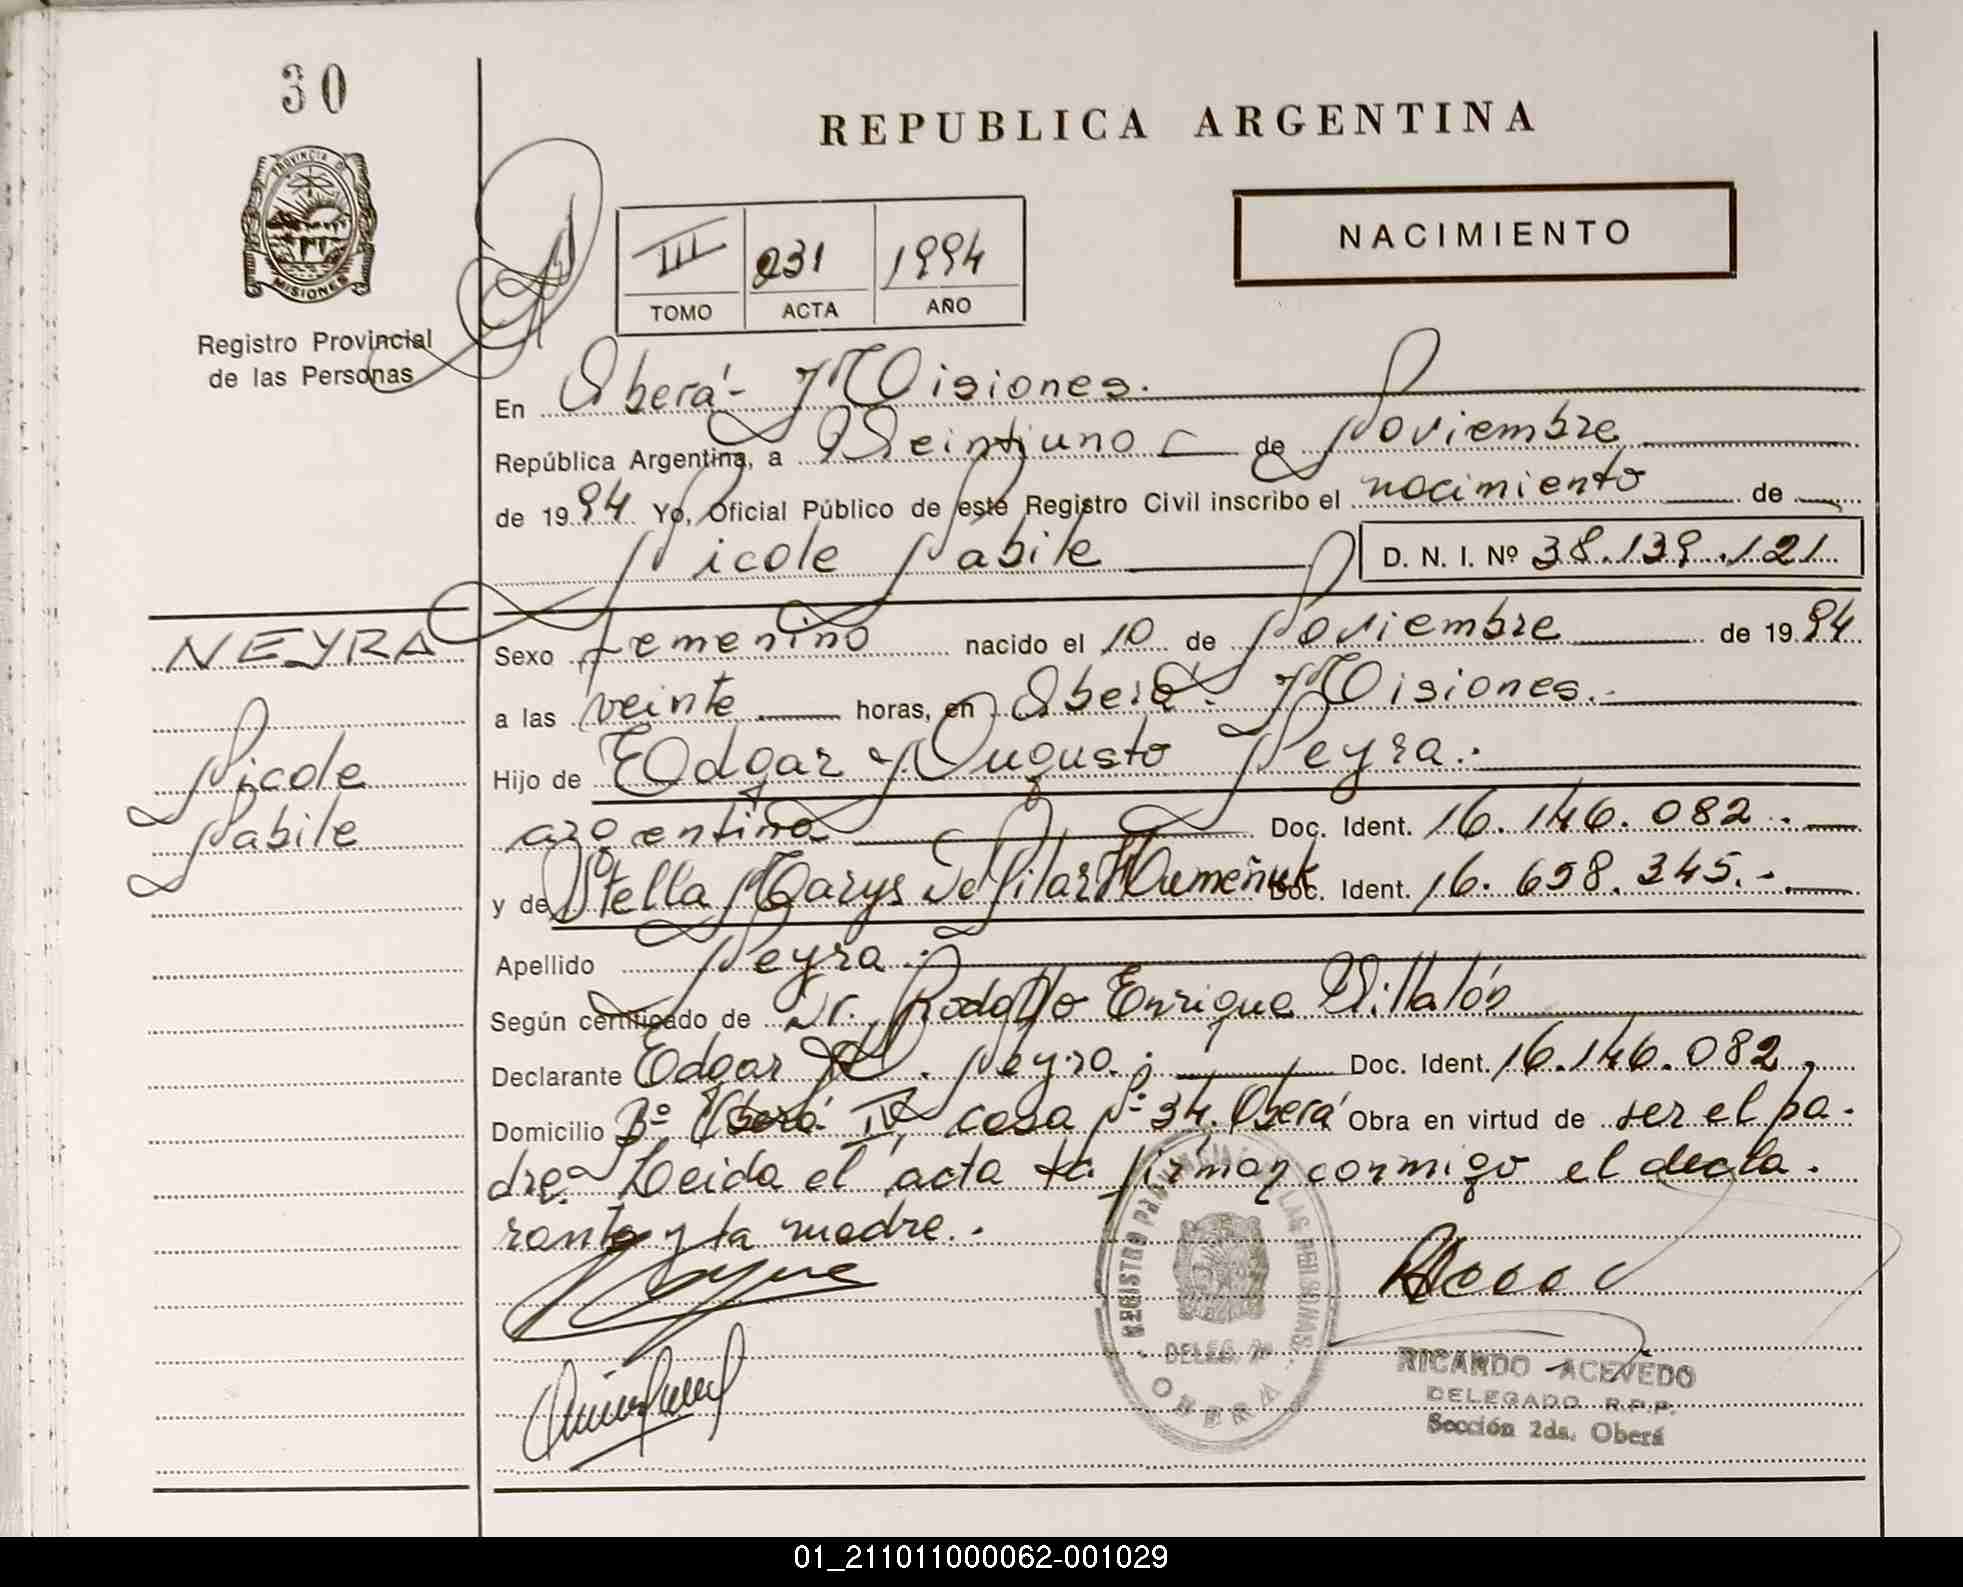 30
REPUBLICA ARGENTINA
PROVINCIA D
MISIONES
Registro Provincial
de las Personas
III 231 1994
TOMO ACTA AÑO
NACIMIENTO
En Oberá - Misiones.
República Argentina, a Veintiuno de Noviembre
de 1994 Yo, Oficial Público de este Registro Civil inscribo el nacimiento de
Nicole Nabile D. N. I. Nº 38.139.121
NEYRA
Nicole
Nabile
Sexo femenino nacido el 10 de Noviembre de 1994
a las veinte horas, en Oberá. Misiones.-
Hijo de Edgar Augusto Neyra.
argentino Doc. Ident. 16.146.082.-
y de Stella Marys Del Pilar Humeñuk Doc. Ident. 16.698.345.-
Apellido Neyra.
Según certificado de Dr. Rodolfo Enrique Villalón
Declarante Edgar A. Neyra. Doc. Ident. 16.146.082.
Domicilio Bº Oberá IV casa Nº 34. Oberá Obra en virtud de ser el pa-
dre. Leida el acta la firman conmigo el decla-
rante y la madre.-
REGISTRO PROVINCIAL LAS PERSONAS
DELEG. 2ª
OBERA
RICARDO ACEVEDO
DELEGADO R.P.P.
Sección 2da. Oberá
01_211011000062-001029